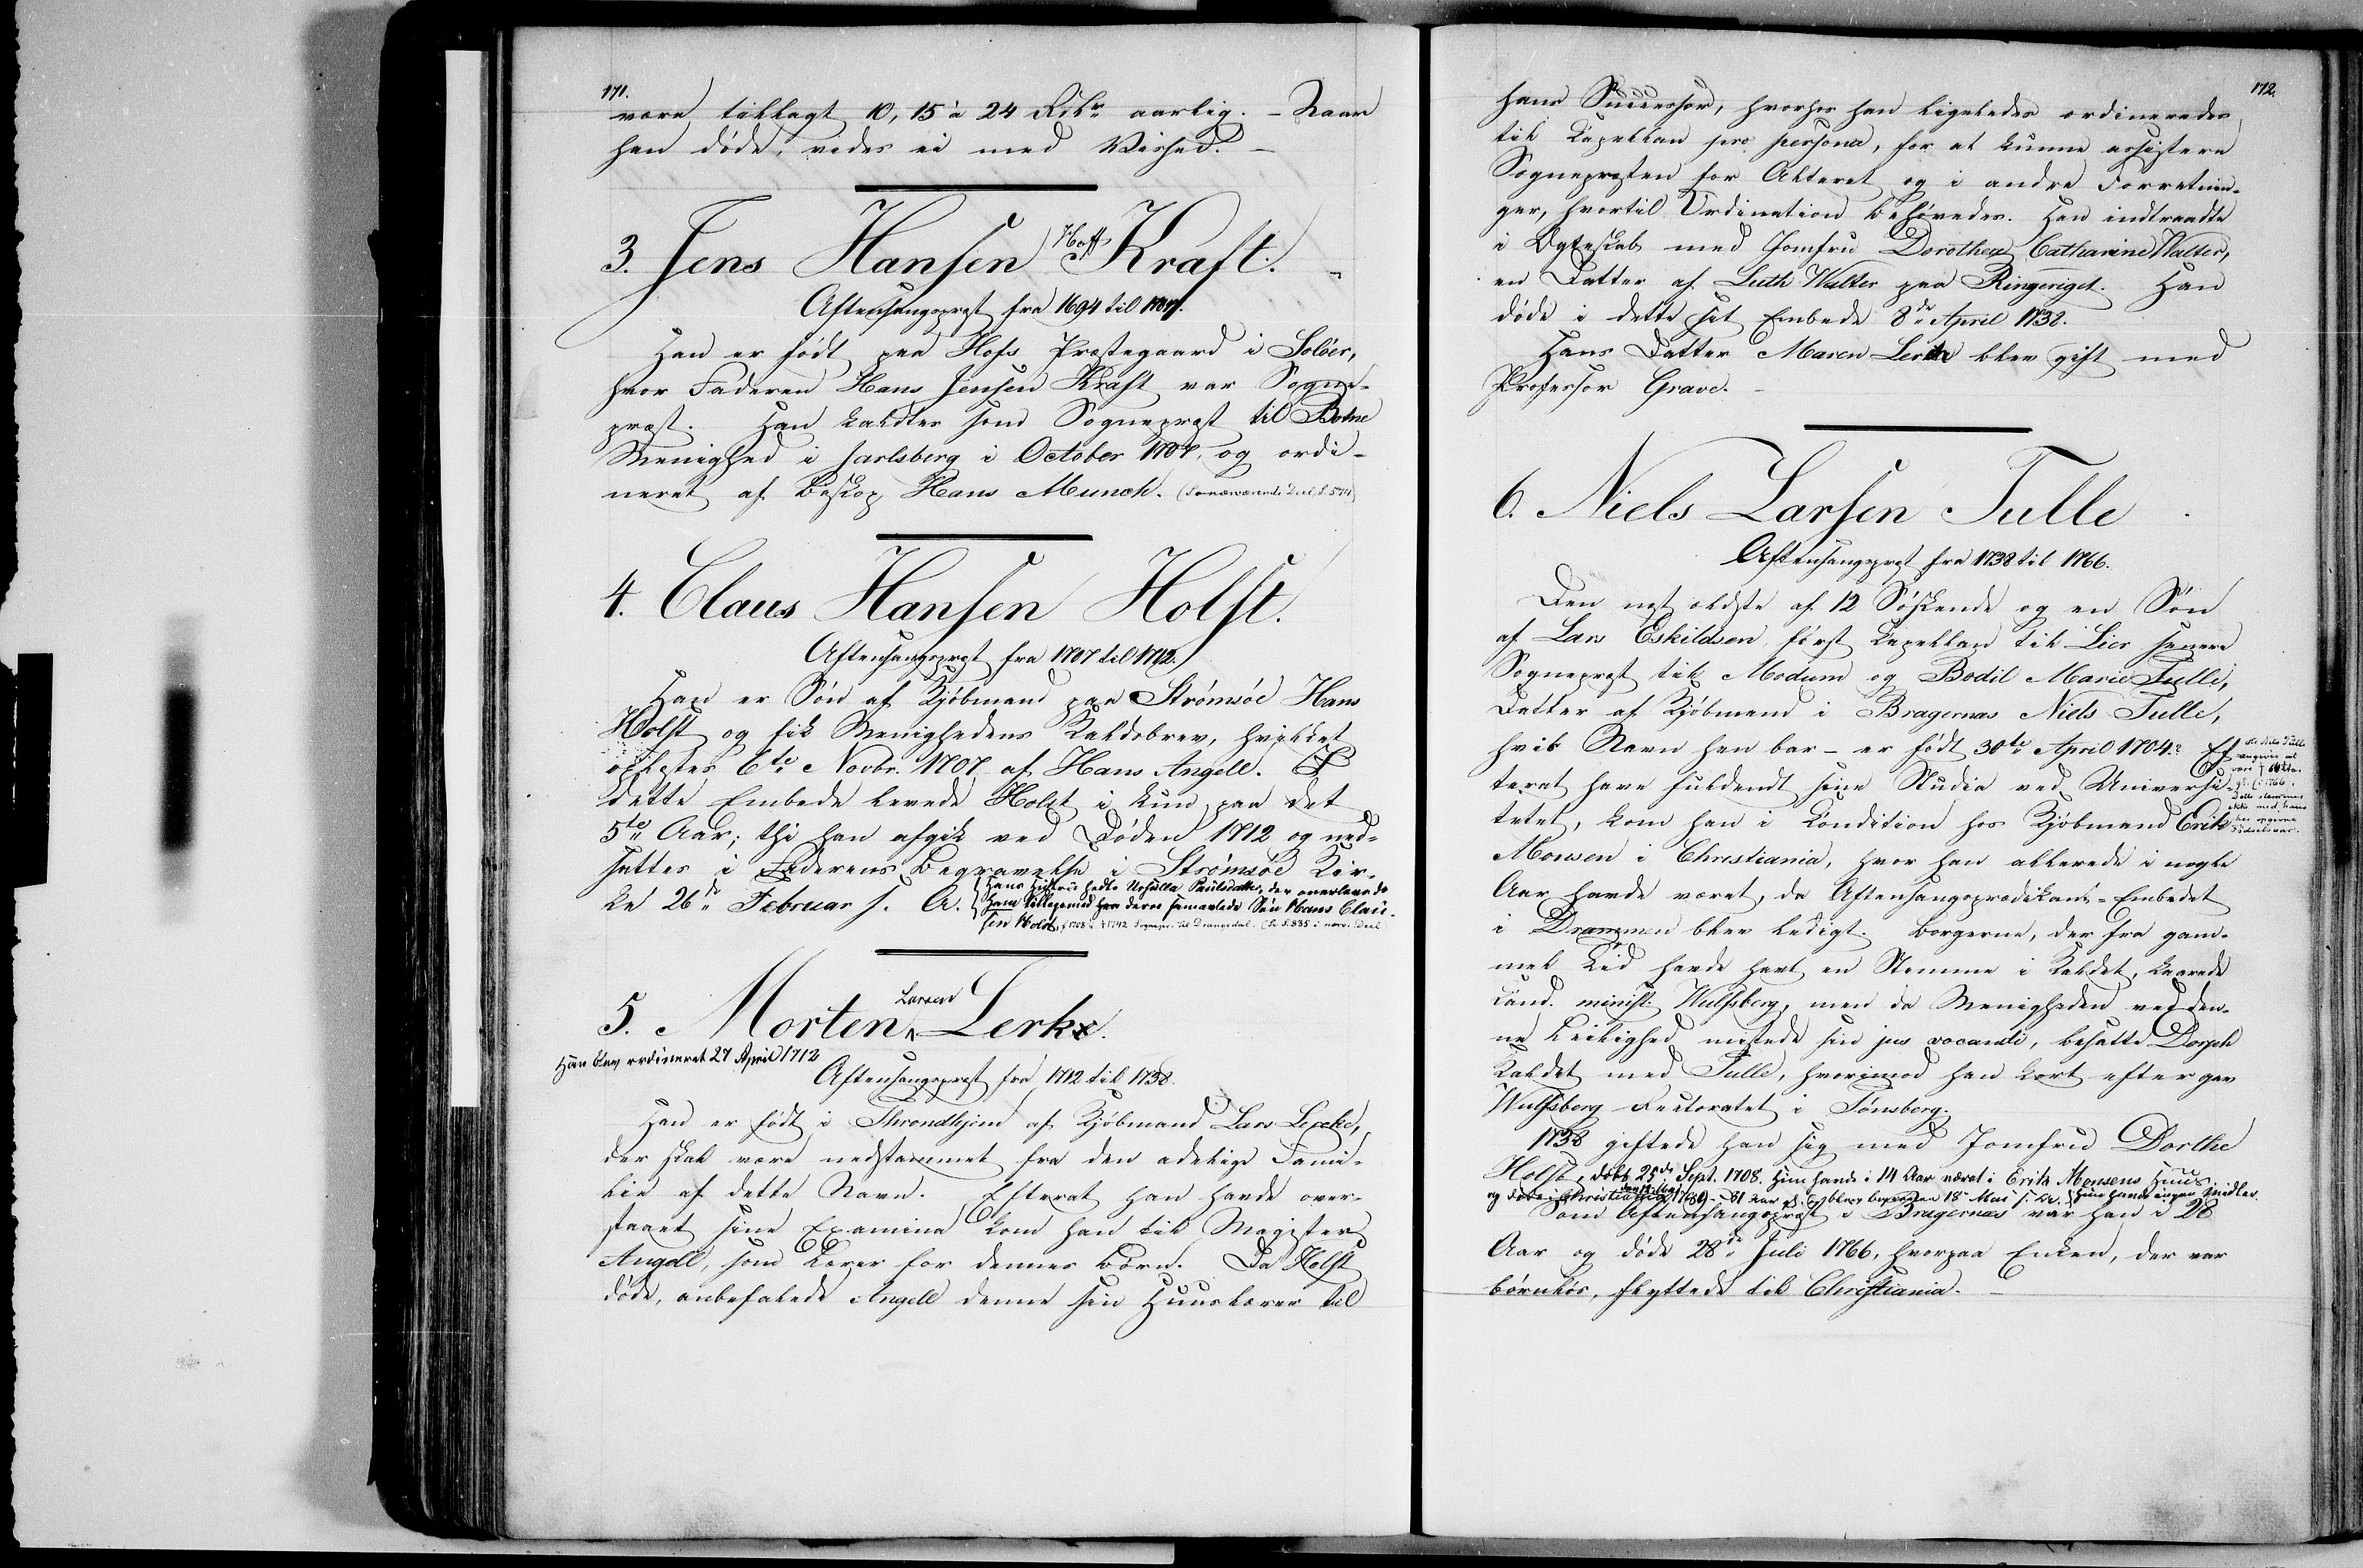 171.
være tillagt 10, 15 à 24 Rdlr aarlig. - Naar
han døde, vides ei med Vished. -
3. Jens Hansen Hoff Kraft.
Aftensangspræst fra 1694 til 1707.
Han er født paa Hofs Præstegaard i Solöer,
hvor Faderen Hans Jensen Kraft var Sogne-
præst. Han kaldtes som Sognepræst til Botne
Menighed i Jarlsberg i October 1707, og ordi-
neret af Biskop Hans Munch. (Nærværende Deel, S. 574)
4. Claus Hansen Holst.
Aftensangspræst fra 1707 til 1712.
Han er Søn af Kjøbmand paa Strømsöe Hans
Holst og fik Menighedens Kaldsbrev, hvilket
oplæstes 6te Novbr. 1707 af Hans Angell. I
dette Embede levede Holst i kun paa det
5te Aar; thi han afgik ved Døden 1712 og ned-
sattes i Faderens Begravelse i Strømsöe Kir-
ke 26de Februar s. A.
Hans Hustru hedte Ursulla Paulsdatter, der overlevede
ham tilligemed deres samavlede Søn Hans Clau-
sen Holst, f. 1708 † 1742 Sognepr. til Drangedal. (Se S. 835 i nærv. Deel)
5. Morten Larsen Lerke.
Han blev ordineret 27 April 1712
Aftensangspræst fra 1712 til 1738.
Han er født i Throndhjem af Kjøbmand Lars Lerche,
der skal være nedstammet fra den adelige Fami-
lie af dette Navn. Efterat han havde over-
staaet sine Examina kom han til Magister
Angell, som Lærer for dennes Børn. Da Holst
døde, anbefalede Angell denne sin Huuslærer til
172.
hans Successor, hvorfor han ligeledes ordineredes
til Capellan pro persona, for at kunne assistere
Sognepræsten for Alteret og i andre Forretnin-
ger, hvortil Ordination behøvedes. Han indtraadte
i Ægteskab med Jomfru Dorothea Catharine Walter,
en Datter af Luth Walter paa Ringeriget. Han
døde i dette sit Embede 8de April 1738.
Hans Datter Maren Lerche blev gift med
Professor Grave. -
6. Niels Larsen Tulle
Aftensangspræst fra 1738 til 1766.
Den næst ældste af 12 Søskende og en Søn
af Lars Eskildsen først Capellan til Lier senere
Sognepræst til Modum og Bodil Marie Tulle,
Datter af Kjøbmand i Bragernæs Niels Tulle,
hvis Navn han bar - er født 30te April 1704. Ef-
terat have fuldendt sine Studia ved Universi-
tetet, kom han i Condition hos Kjøbmand Erik
Monsen i Christiania, hvor han allerede i nogle
Aar havde været, da Aftensangsprædikant-Embedet
i Drammen blev ledigt. Borgerne, der fra gam-
mel Tid havde havt en Stemme i Kaldet, kaarede
Cand. minist. Wulfsberg, men da Menigheden ved den-
ne Leilighed mistede sin jus vocandi, besatte Dorph
Kaldet med Tulle, hvorimod han kort efter gav
Wulfsberg Rectoratet i Tönsberg.
1738 giftede han sig med Jomfru Dorthe
Holst, døbt 25de Sept. 1708. Hun havde i 14 Aar været i Erik Monsens Huus
og døde i Christiania 1789 - 81 Aar gl. og blev begraven 18de Mai s. A. Hun havde ingen Midler.
Som Aftensangspræst i Bragernæs var han i 28
Aar og døde 28de Juli 1766, hvorpaa Enken, der var
børnløs, flyttede til Christiania. -
Niels Tulle
angives at
være
Dette stemmer
ikke med hans
her opgivne
Fødselsaar.